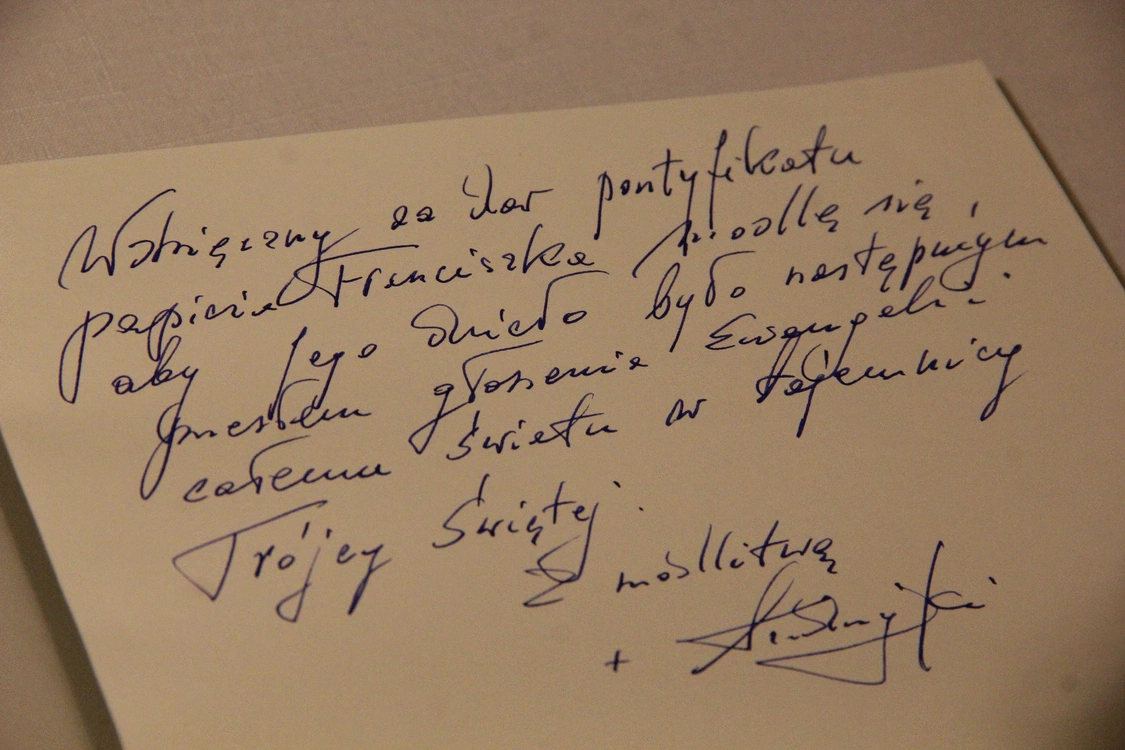 Wdzięczny za dar pontyfikatu
papieża Franciszka modlę się,
aby Jego dzieło było następnym
mostem głoszenia Ewangelii
całemu światu w tajemnicy
Trójcy Świętej.
Z modlitwą
+